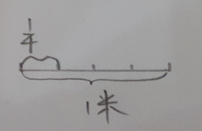 1/4
1米